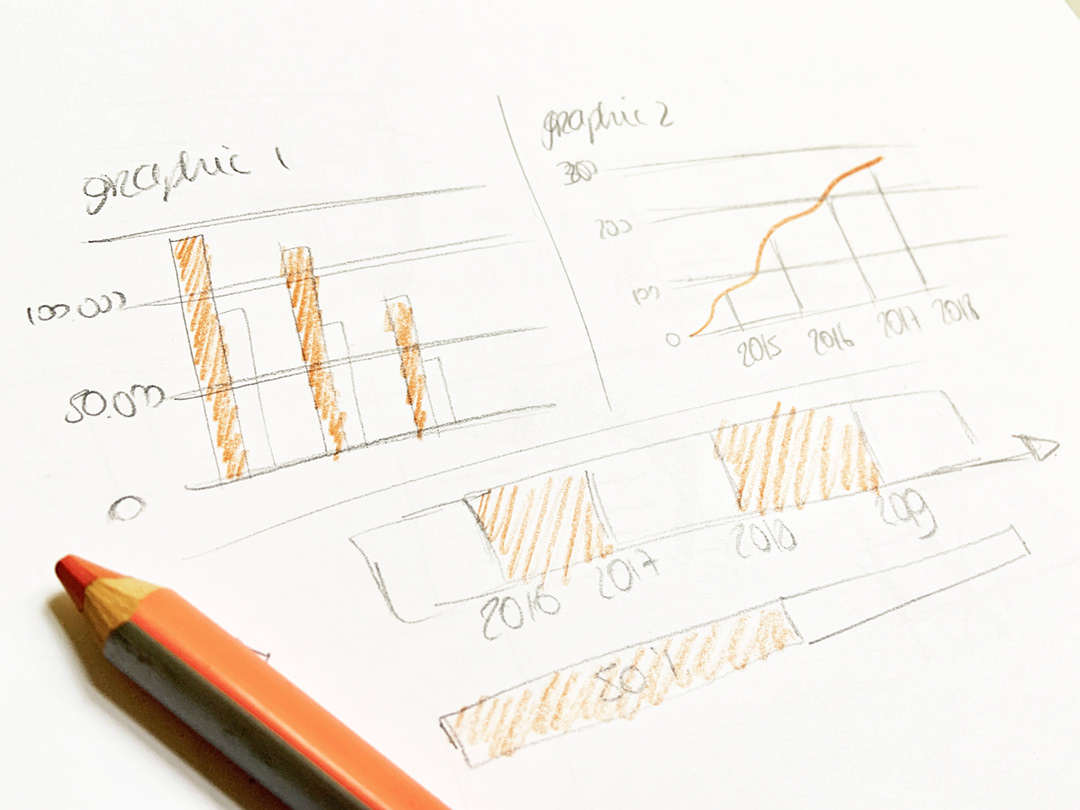 graphic 1
100.000
50.000
0
graphic 2
300
200
100
0
2015 2016 2017 2018
2016 2017 2018 2019
80%